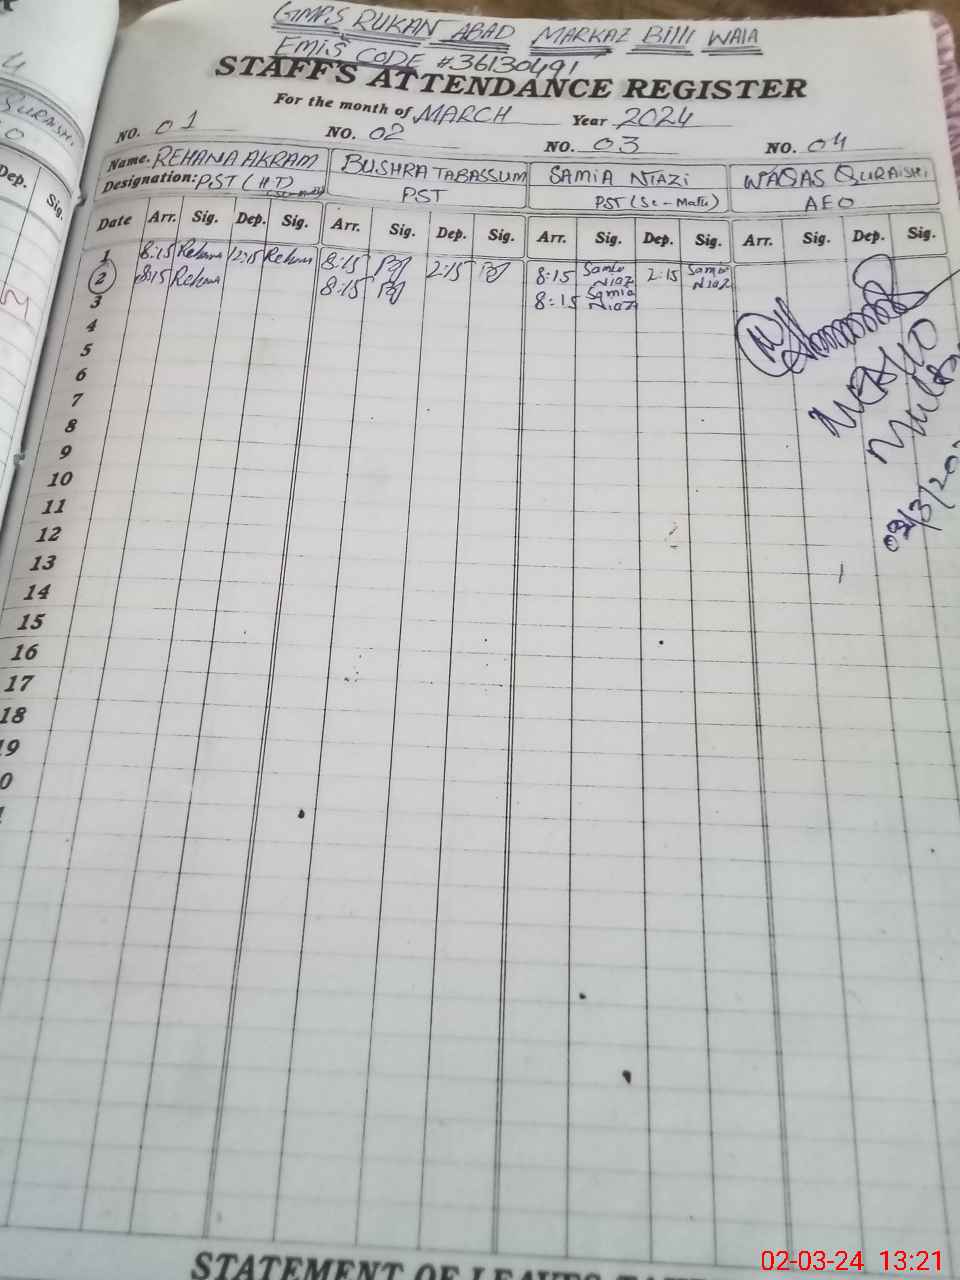 GMPS RUKAN ABAD MARKAZ BILLI WALA
EMIS CODE #36130491
STAFF'S ATTENDANCE REGISTER
For the month of MARCH Year 2024
NO. 01 NO. 02 NO. 03 NO. 04
Name. REHANA AKRAM BUSHRA TABASSUM SAMIA NIAZI WAQAS QURAISHI
Designation: PST (HT) PST PST (Sc-Math) AEO
Date Arr. Sig. Dep. Sig. Arr. Sig. Dep. Sig. Arr. Sig. Dep. Sig. Arr. Sig. Dep. Sig.
1 8:15 Rehana 12:15 Rehana 8:15 2:15 8:15 Samia Niazi 2:15 Samia Niazi
2 8:15 Rehana 8:15 8:15 Samia Niazi
3
4
5
6
7
8
9
10
11
12
13
14
15
16
17
18
19
0
QURAISHI
Dep. Sig.
STATEMENT OF LEAVES
02-03-24 13:21